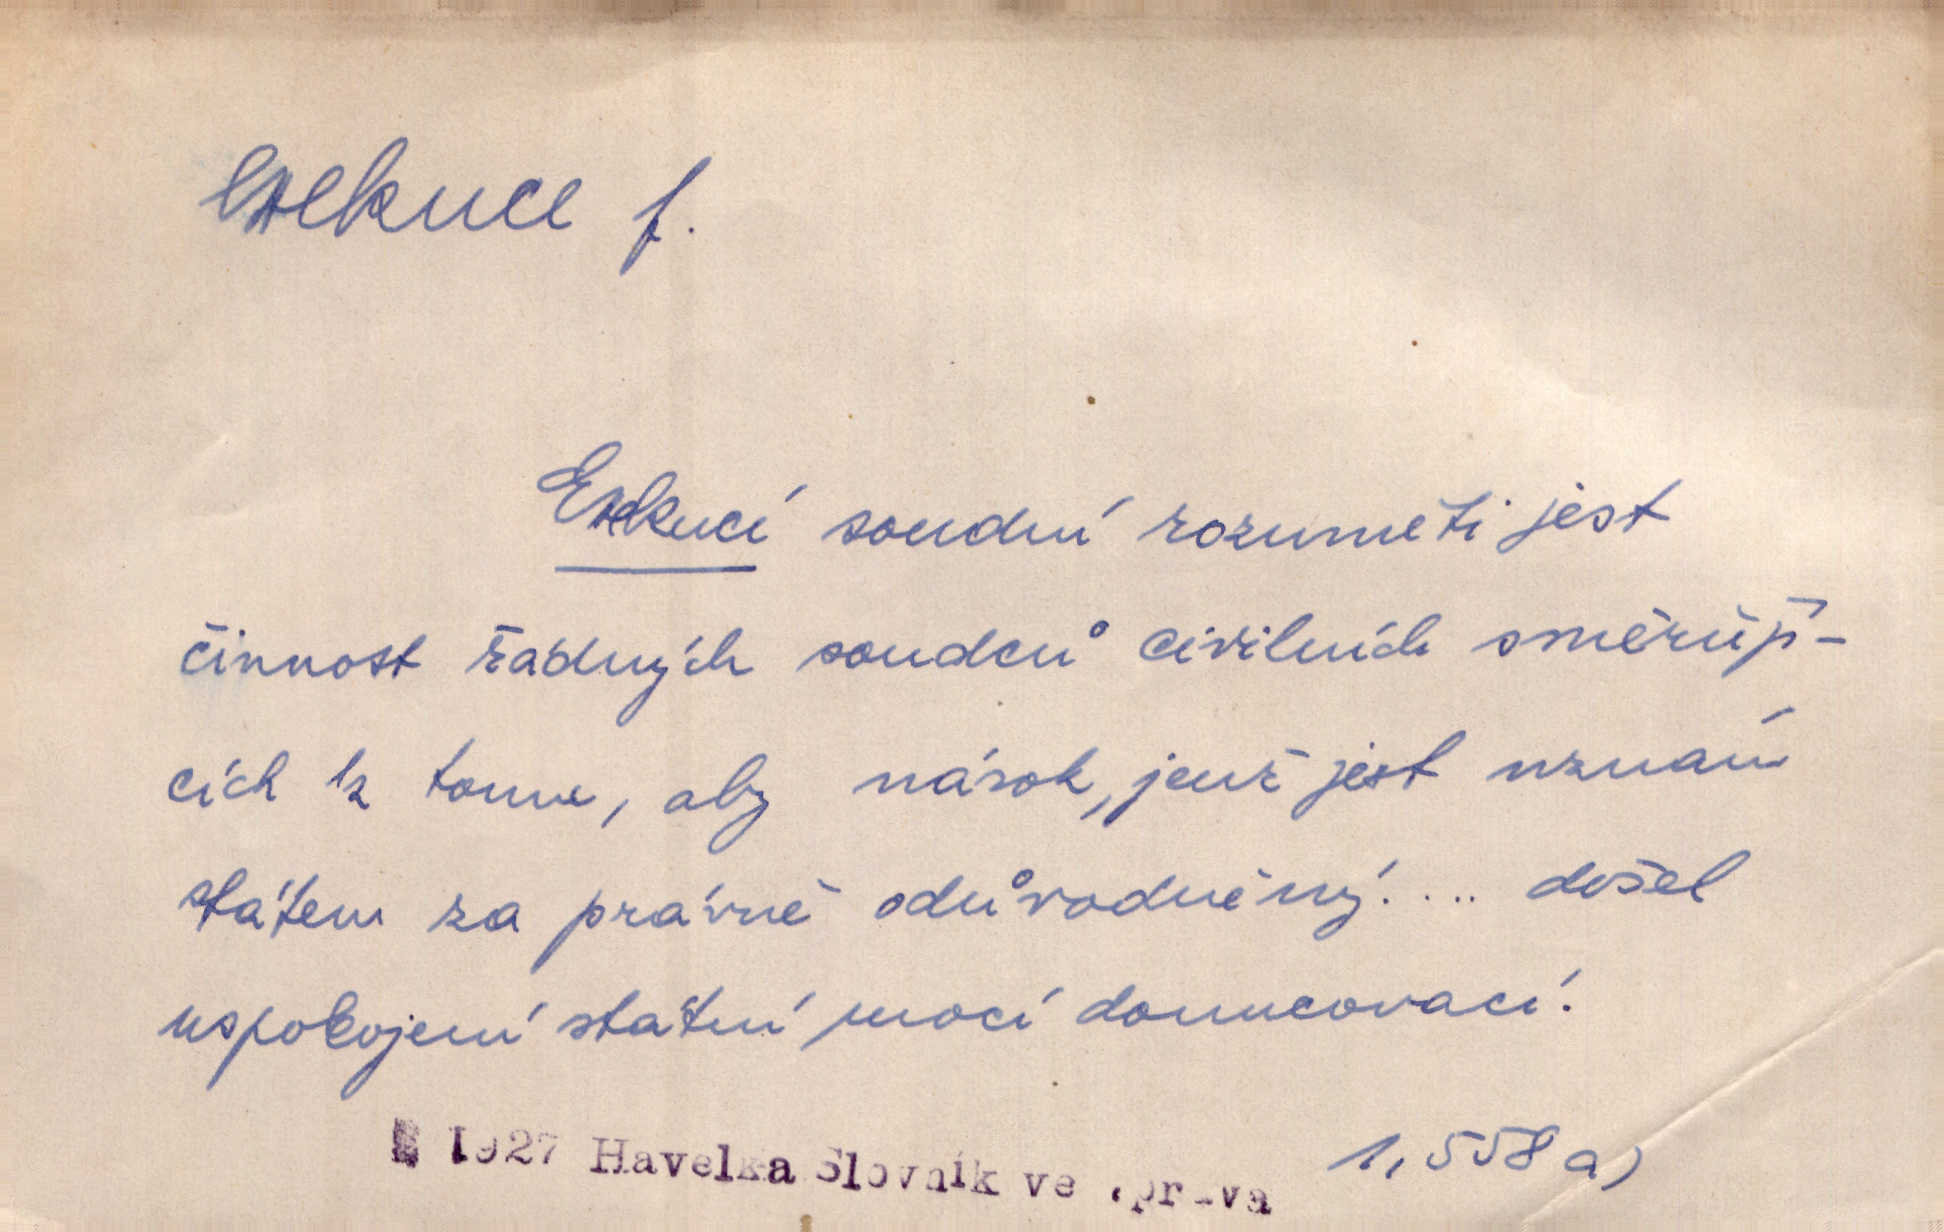 exekuce f.
Exekucí soudní rozuměti jest
činnost řádných soudců civilních směřují-
cích k tomu, aby nárok, jenž jest uznán
státem za právně odůvodněný.... došel
uspokojení státní mocí donucovací.
1927 Havelka Slovník ve .práva 1,558 a)